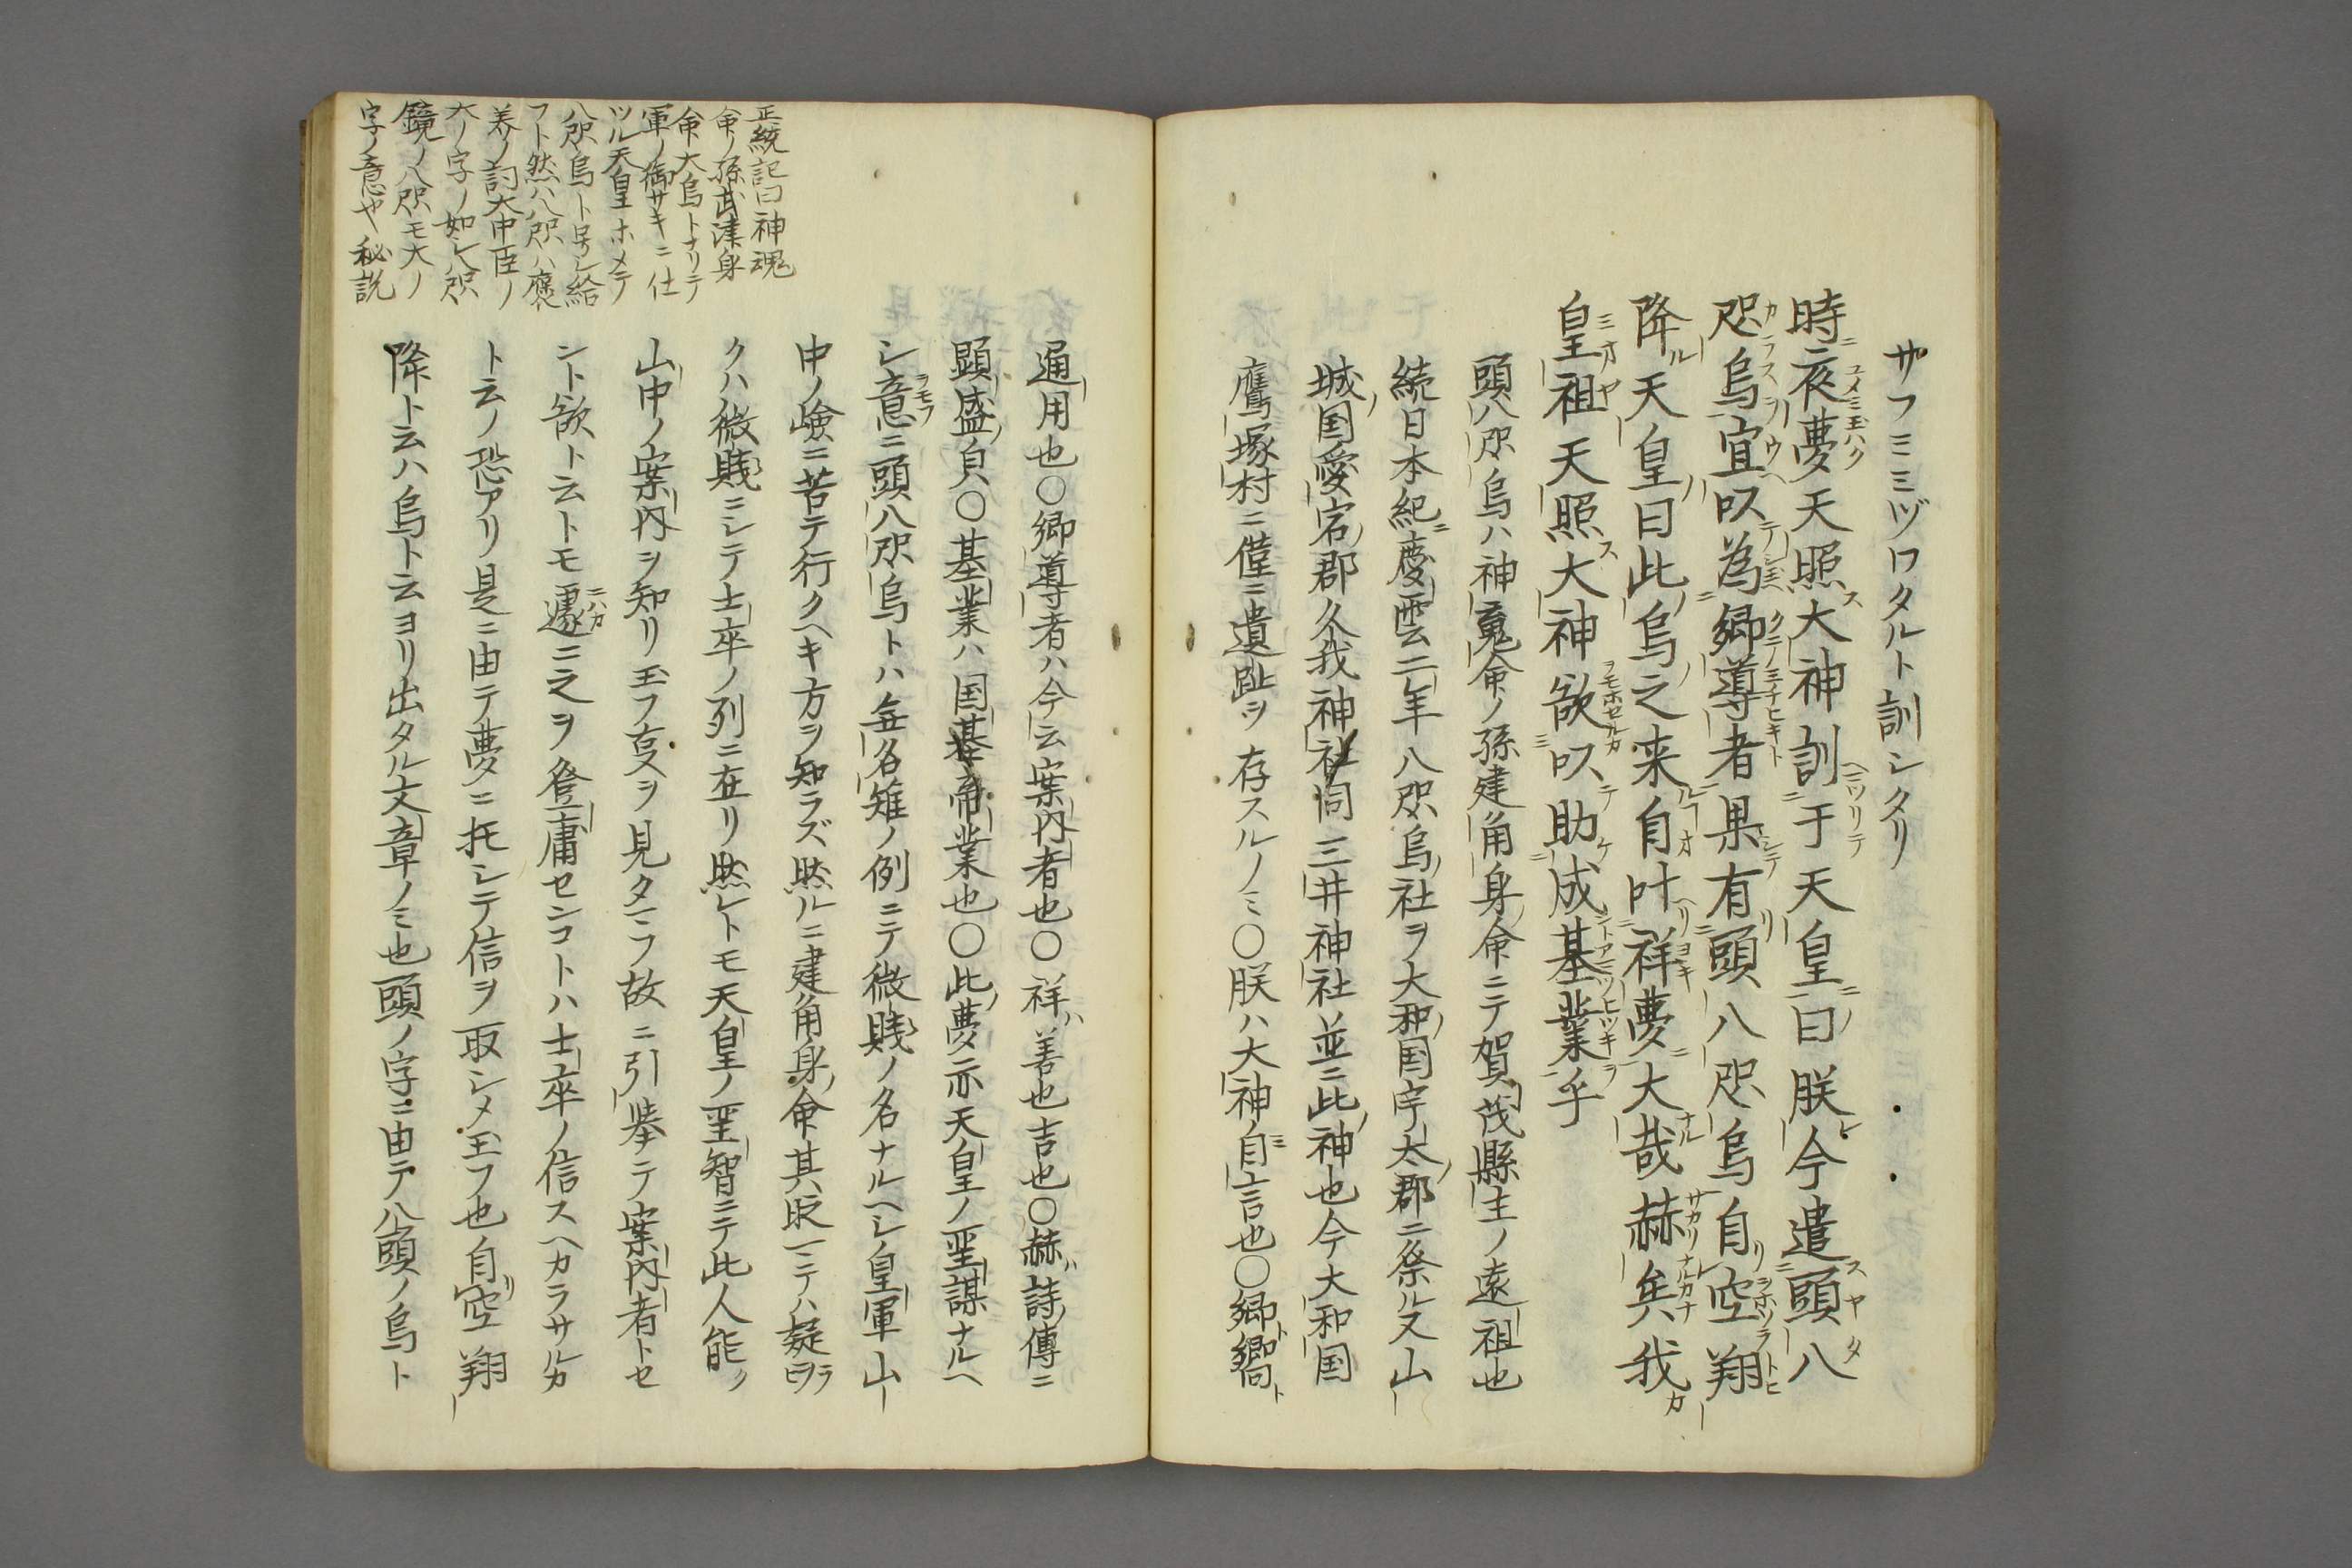 サフミミヅワタルト訓シタリ
時夜夢天照大神訓于天皇曰朕今遣頭八
咫烏宜以為郷導者果有頭八咫烏自空翔
降天皇曰此烏之来自叶祥夢大哉赫矣我
皇祖天照大神欲以助成基業乎
頭八咫烏ハ神䰟命ノ孫建角身命ニテ賀茂縣主ノ遠祖也
続日本紀慶雲二年八咫烏社ヲ大和国宇太郡ニ祭ル又山
城国愛宕郡久我神社同三井神社並ニ此神也今大和国
鷹塚村ニ僅ニ遺趾ヲ存スルノミ〇朕ハ大神自言也〇郷ト嚮ト
通用也〇郷導者ハ今云案内者也〇祥ハ善也吉也〇赫ハ詩傳ニ
顕盛皃〇基業ハ国基帝業也〇此夢亦天皇ノ聖謀ナルヘ
シ意ニ頭八咫烏トハ無名雉ノ例ニテ微賎ノ名ナルヘシ皇軍山
中ノ嶮ニ苦テ行クヘキ方ヲ知ラズ然ルニ建角身命其
クハ微賎ニシテ士卒ノ列ニ在リ然レトモ天皇ノ聖智ニテ此人能ク
山中ノ案内ヲ知リ玉フ叓ヲ見タマフ故ニ引挙テ案内者トセ
ント欲ト云トモ遽ニ之ヲ登庸センコトハ士卒ノ信スヘカラサルカ
ト云ノ恐アリ是ニ由テ夢ニ托シテ信ヲ取シメ玉フ也自空翔
降ト云ハ烏ト云ヨリ出タル文章ノミ也頭ノ字ニ由テ八頭ノ烏ト
正統記曰神魂
命ノ孫武津身
命大烏トナリテ
軍ノ御サキニ仕
ツル天皇ホメテ
八咫烏ト号シ給
フト然ハ八咫ハ褒
美ノ詞大中臣ノ
大ノ字ノ如シ咫
鏡ノ八咫モ大ノ
字ノ意也秘説